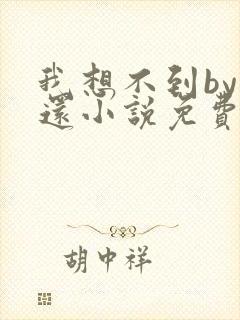 我想不到by
還小說免費
胡中祥